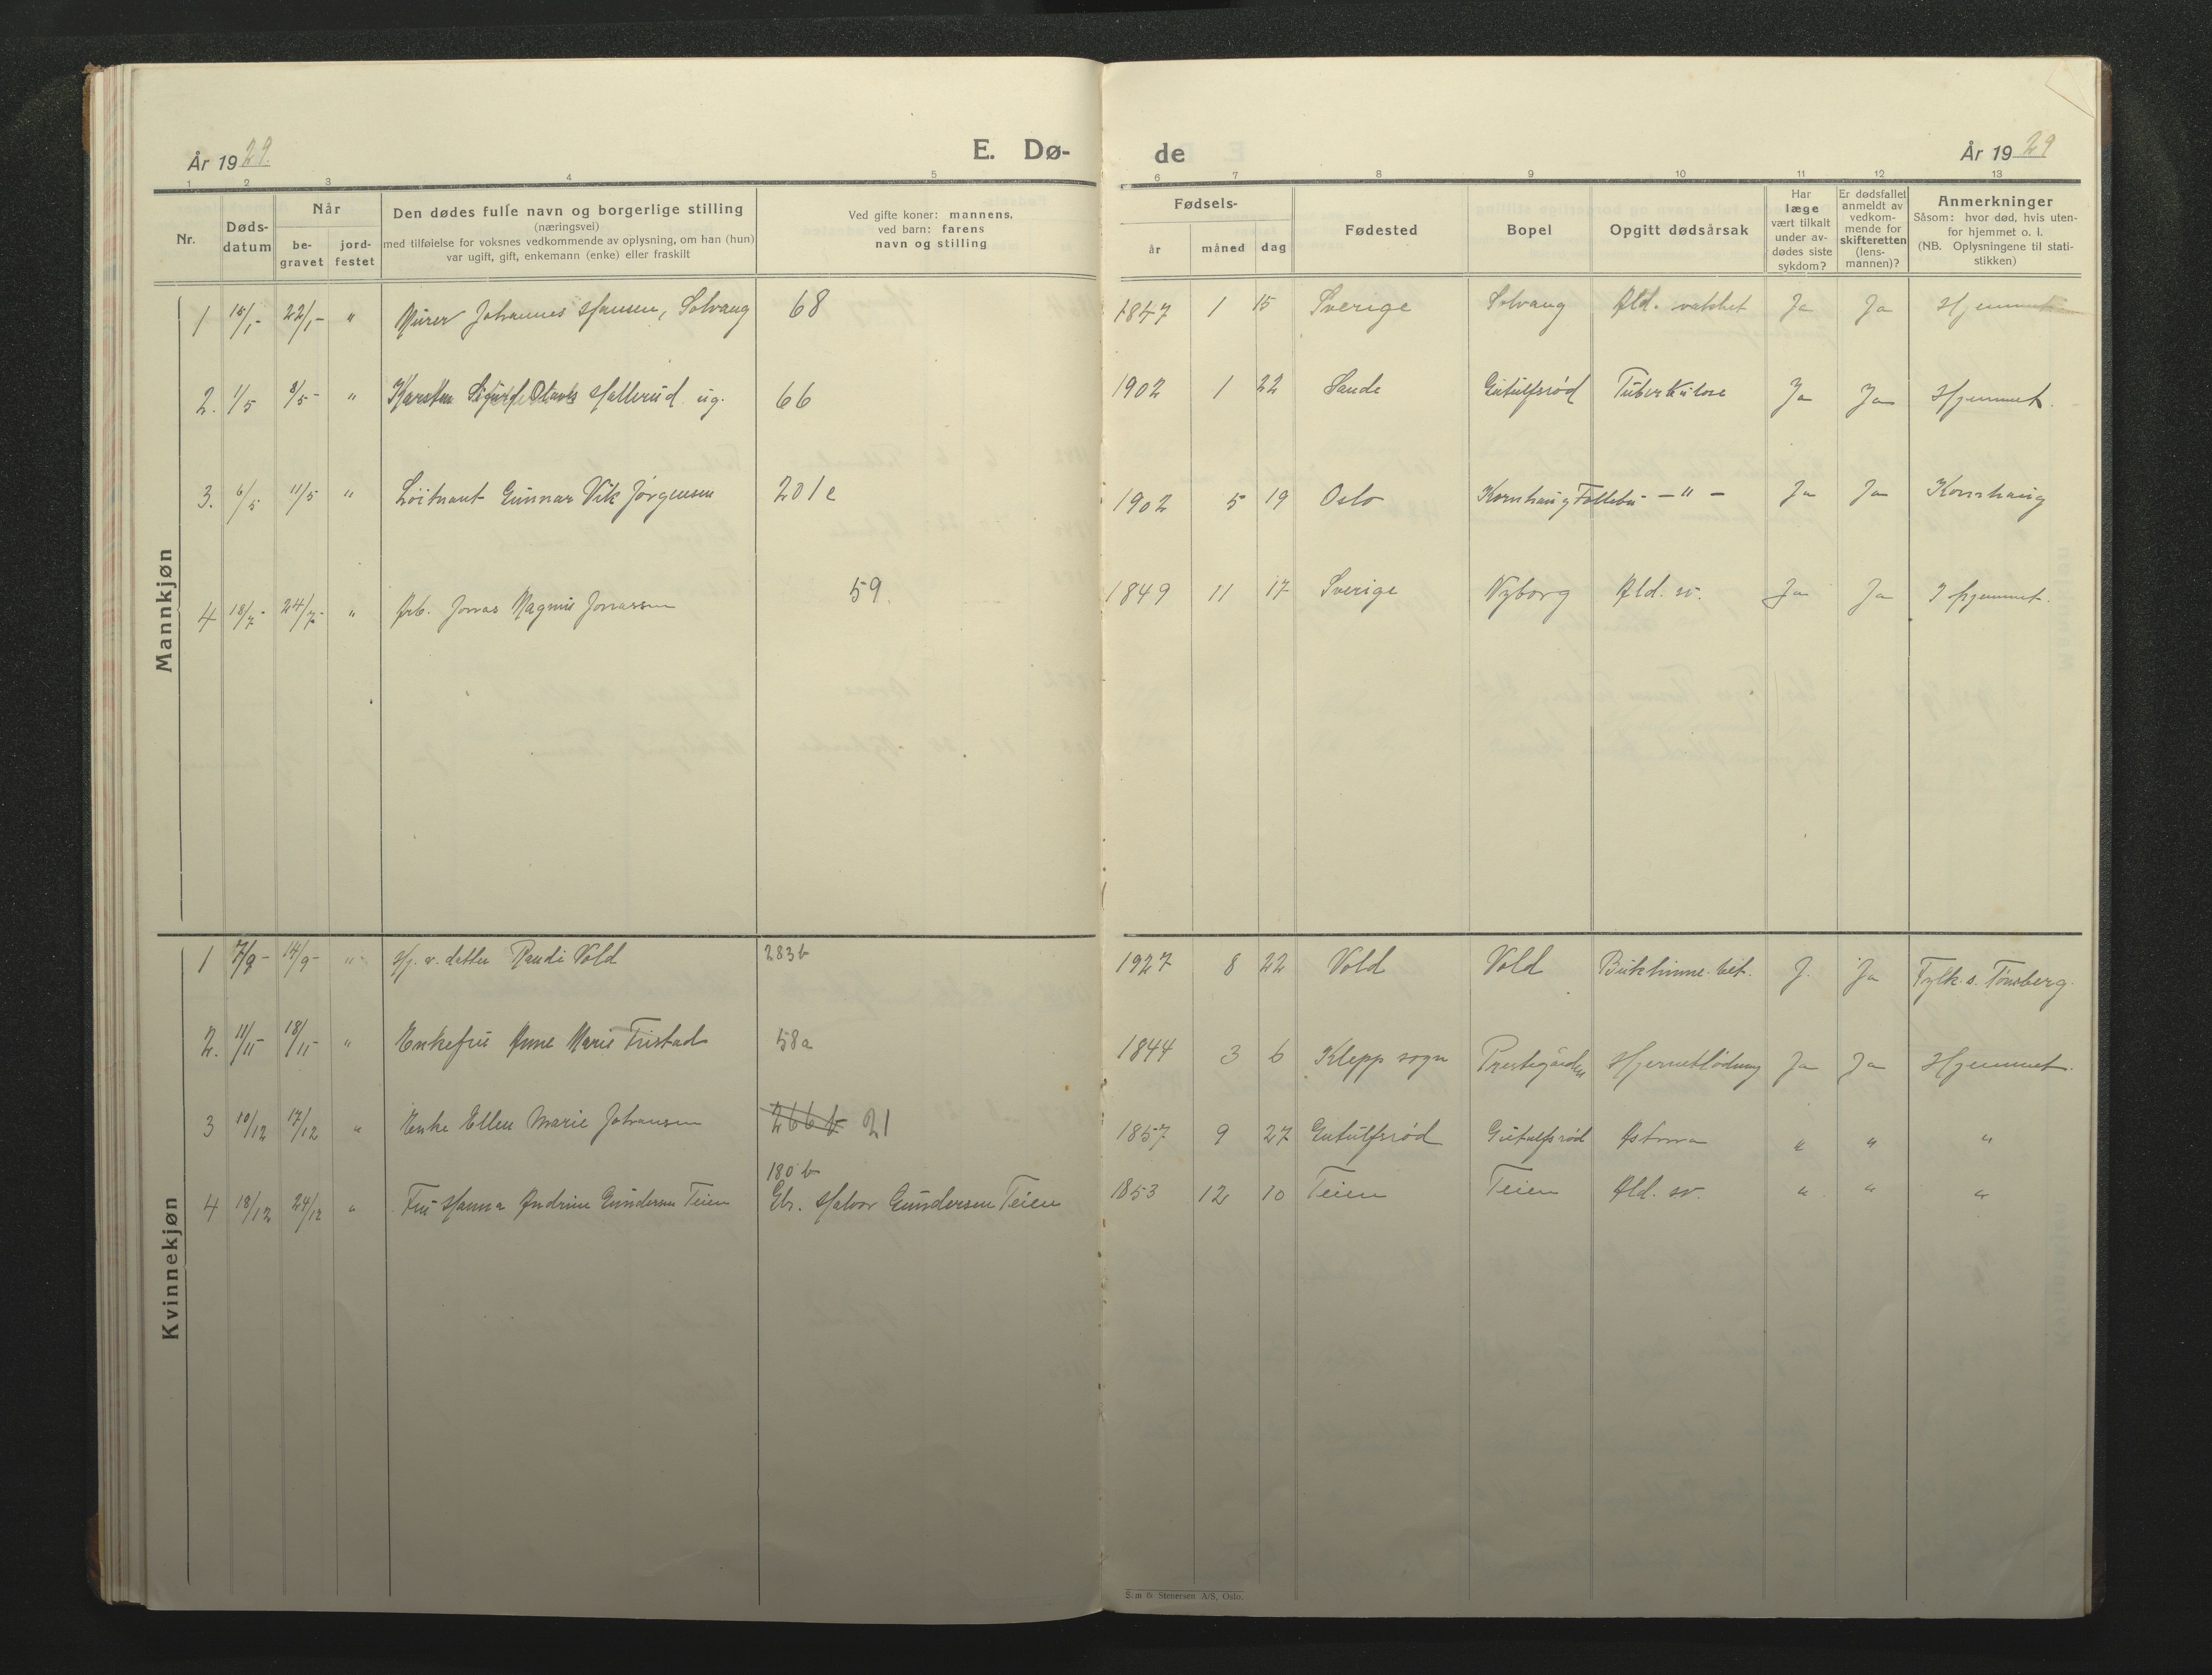 År 1929. E. Dø- de År 1929
1 2 3 4 5 6 7 8 9 10 11 12 13
Nr.
Døds-
datum
Når
be-
gravet
jord-
festet
Den dødes fulle navn og borgerlige stilling
(næringsvei)
med tilføielse for voksnes vedkommende av oplysning, om han (hun)
var ugift, gift, enkemann (enke) eller fraskilt
Ved gifte koner: mannens,
ved barn: farens
navn og stilling
Fødsels-
år måned dag
Fødested
Bopel
Opgitt dødsårsak
Har
læge
vært tilkalt
under av-
dødes siste
sykdom?
Er dødsfallet
anmeldt av
vedkom-
mende for
skifteretten
(lens-
mannen)?
Anmerkninger
Såsom: hvor død, hvis uten-
for hjemmet o. l.
(NB. Oplysningene til stati-
stikken)
Mannkjøn
1 15/1- 22/1- " Murer Johannes Hansen, Solvang 68 1847 1 15 Sverige Solvang Ald. Ja Ja Hjemmet
2. 1/5 8/5- " Karsten Sigurd Olaves Hallerud ug. 66 1902 1 22 Sande Gutulfsrød Tuberkulose Ja Ja Hjemmet.
3. 6/5 11/5 " Løitnant Gunnar Vik Jørgensen 201e 1902 5 19 Oslo Kornhaug Follebu - " - Ja Ja Kornhaug
4 18/7- 24/7- " Arb. Jonas Magnus Jonassen 59. 1849 11 17 Sverige Nyborg Ald. sv. Ja Ja I hjemmet.
Kvinnekjøn
1 7/9- 14/9- " Hj. v. datter Randi Vold 283b 1927 8 22 Vold Vold Bukhinne. bet. J. Ja Fylk. s. Tønsberg.
2. 11/11- 18/11- " Enkefru Anne Marie Tristad 58a 1844 3 6 Klepp sogn Prestegården Hjerneblødning Ja Ja Hjemmet.
3 10/12 17/12 " Enke Ellen Marie Johansen 266b 21 1857 9 27 Gutulfsrød Gutulfsrød Astma " " "
180b
4 18/12 24/12 " Fru Hanna Andrine Gundersen Teien Gbr. Halvor Gundersen Teien 1853 12 10 Teien Teien Ald. sv. " " "
Sem & Stenersen A/S, Oslo.